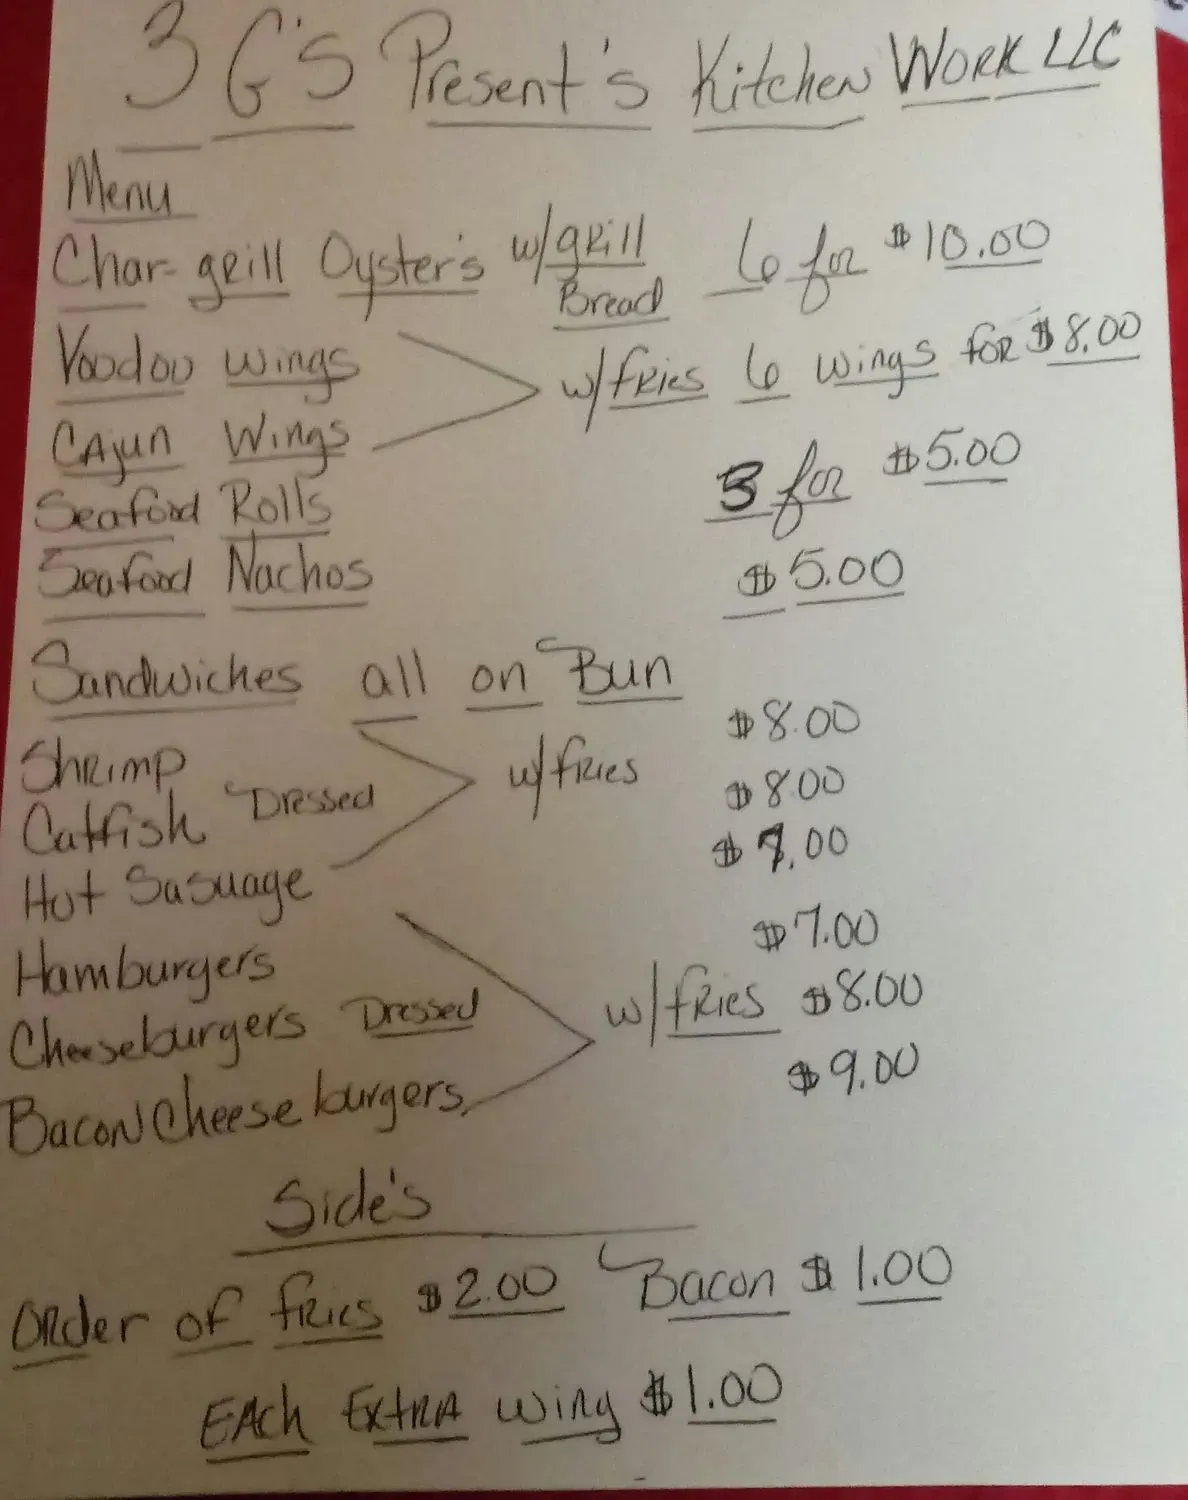 3 G'S Present's Kitchen Work LLC
Menu
Char-grill Oyster's w/grill Bread 6 for $10.00
Voodoo wings
w/fries 6 wings for $8.00
Cajun Wings
Seafood Rolls 3 for $5.00
Seafood Nachos $5.00
Sandwiches all on Bun
Shrimp $8.00
Catfish Dressed w/fries $8.00
Hot Sasuage
Hamburgers $7.00
Cheeseburgers Dressed w/fries $8.00
Bacon Cheese burgers $9.00
Side's
Order of fries $2.00 Bacon $1.00
Each Extra wing $1.00